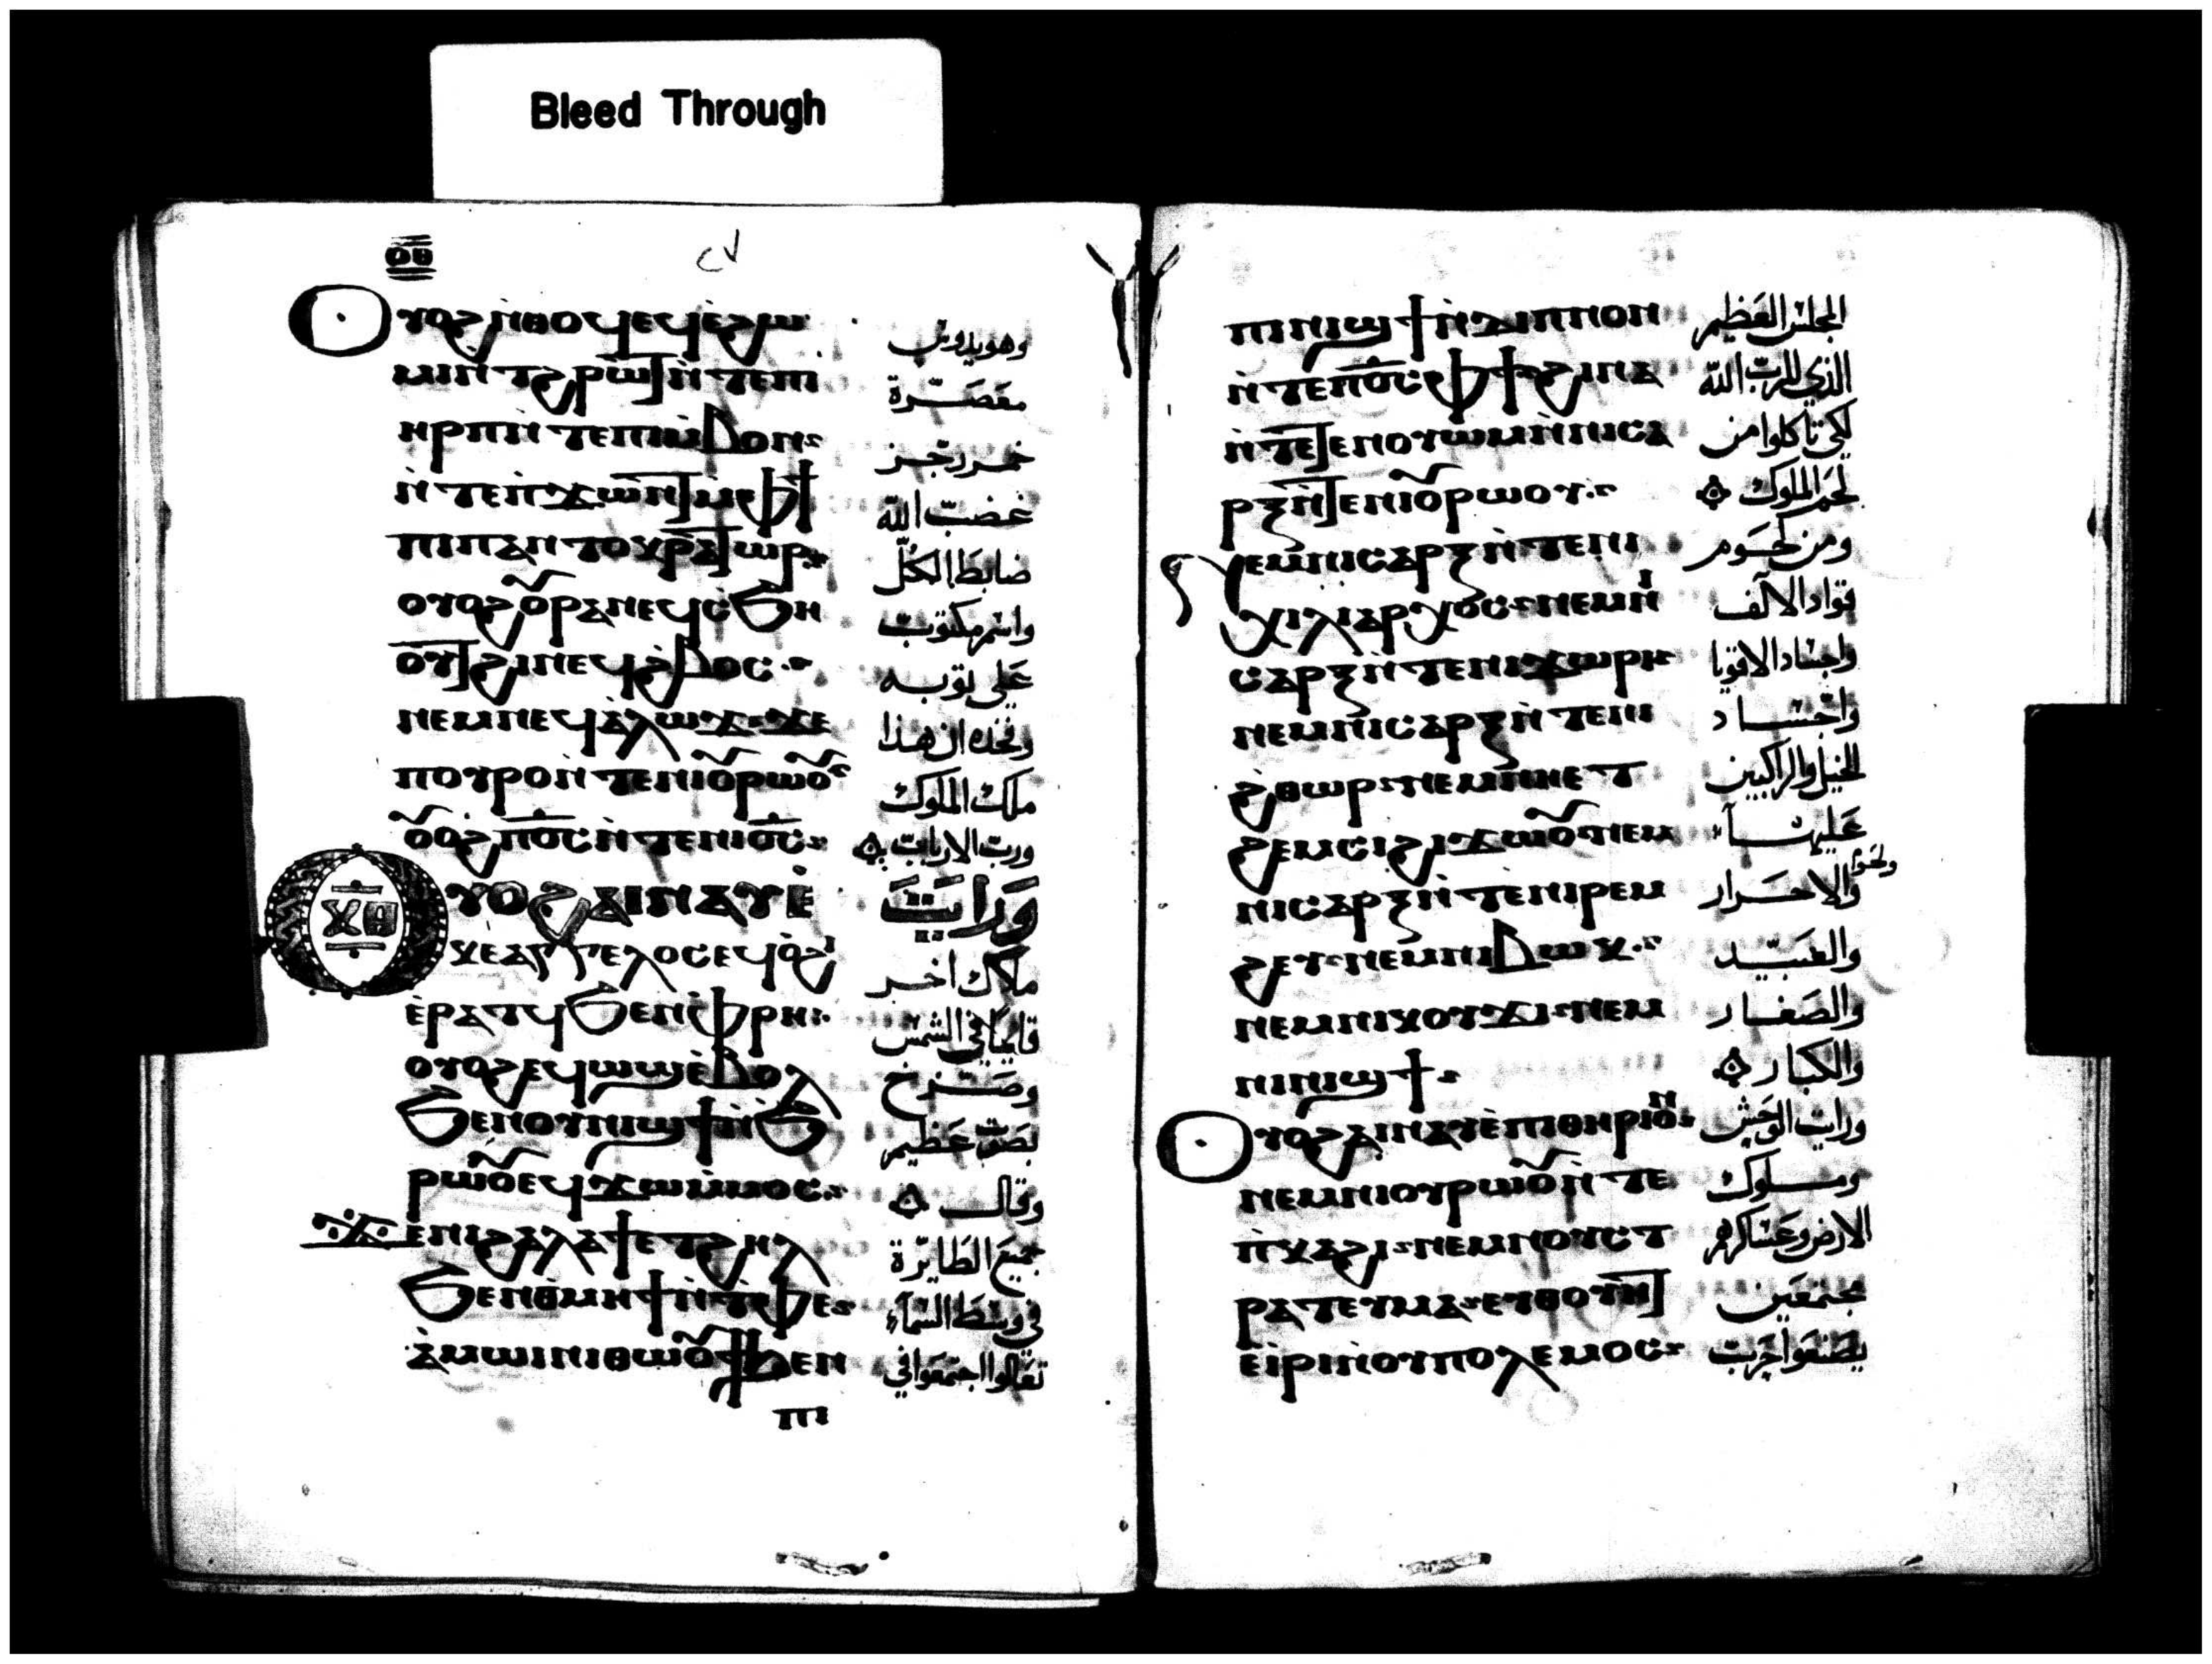 Bleed Through
ⲟⲑ
٢٧
ⲟⲩⲟϩ ⲛ̀ⲑⲟϥ ⲉϥⲉ̀ϩⲱ وهو يدوس
ⲙⲓ ⲛ̀ϯϩⲣⲱϯ ⲛ̀ⲧⲉ ⲡⲓ معصرة
ⲏⲣⲡ ⲛ̀ⲧⲉ ⲡⲓⲙ̀ⲃⲟⲛ خمر رجز
ⲛ̀ⲧⲉ ⲡ̀ϫⲱⲛⲧ ⲙ̀ⲫϯ غضب الله
ⲡⲓⲡⲁⲛⲧⲟⲕⲣⲁⲧⲱⲣ ضابط الكل
ⲟⲩⲟϩ ⲟⲩⲣⲁⲛ ⲉϥⲥ̀ϧⲏ واسم مكتوب
ⲟⲩⲧ ϩⲓ ⲡⲉϥϩ̀ⲃⲟⲥ على ثوبه
ⲛⲉⲙ ⲡⲉϥⲁ̀ⲗⲱϫ ϫⲉ وفخذه ان هذا
ⲡⲟⲩⲣⲟ ⲛ̀ⲧⲉ ⲛⲓⲟⲩⲣⲱⲟⲩ ملك الملوك
ⲟⲩⲟϩ ⲡϭⲥ ⲛ̀ⲧⲉ ⲛⲓϭⲥ ورب الارباب
ⲝⲑ
ⲟⲩⲟϩ ⲁⲓⲛⲁⲩ ⲉ̀ ورايت
ⲕⲉⲁⲅⲅⲉⲗⲟⲥ ⲉϥⲟ̀ϩⲓ ملاك اخر
ⲉ̀ⲣⲁⲧϥ ϧⲉⲛ ⲫ̀ⲣⲏ قايما في الشمس
ⲟⲩⲟϩ ⲉϥⲱϣ ⲉ̀ⲃⲟⲗ وصرخ
ϧⲉⲛ ⲟⲩⲛⲓϣϯ ⲛ̀ϧ بصوت عظيم
ⲣⲱⲟⲩ ⲉϥϫⲱ ⲙ̀ⲙⲟⲥ وقال
ϫⲉ ⲛⲓϩⲁⲗⲁϯ ⲉⲧϩⲏⲗ جميع الطايرة
ϧⲉⲛ ⲑ̀ⲙⲏϯ ⲛ̀ⲧ̀ⲫⲉ في وسط السماء
ⲁ̀ⲙⲱⲓⲛⲓ ⲑⲱⲟⲩϯ ϧⲉⲛ تعالوا اجتمعوا في
ⲡⲓ
ⲡⲓⲛⲓϣϯ ⲛ̀ⲇⲓⲡⲛⲟⲛ المجلس العظيم
ⲛ̀ⲧⲉ ⲡϭⲥ ⲫϯ ϩⲓⲛⲁ الذي للرب الله
ⲛ̀ⲧⲉⲧⲉⲛⲟⲩⲱⲙ ⲛ̀ⲛⲓⲥⲁ لكي تاكلوا من
ⲣⲝ ⲛ̀ⲧⲉ ⲛⲓⲟⲩⲣⲱⲟⲩ لحم الملوك
ⲛⲉⲙ ⲛⲓⲥⲁⲣⲝ ⲛ̀ⲧⲉ ⲛⲓ ومن لحوم
ⲭⲓⲗⲓⲁⲣⲭⲟⲥ ⲛⲉⲙ ⲛⲓ قواد الالف
ⲥⲁⲣⲝ ⲛ̀ⲧⲉ ⲛⲓϫⲱⲣⲓ واجساد الاقويا
ⲛⲉⲙ ⲛⲓⲥⲁⲣⲝ ⲛ̀ⲧⲉ ⲛⲓ واجساد
ϩ̀ⲑⲱⲣ ⲛⲉⲙ ⲛⲏⲉⲧ الخيل والراكبين
ϩⲉⲙⲥⲓ ϩⲓϫⲱⲟⲩ ⲛⲉⲙ عليها
ⲛⲓⲥⲁⲣⲝ ⲛ̀ⲧⲉ ⲛⲓⲣⲉⲙ ولحوم والاحرار
ϩⲉⲩ ⲛⲉⲙ ⲛⲓⲃⲱⲕ والعبيد
ⲛⲉⲙ ⲛⲓⲕⲟⲩϫⲓ ⲛⲉⲙ والصغار
ⲛⲓⲛⲓϣϯ والكبار
ⲟⲩⲟϩ ⲁⲓⲛⲁⲩ ⲉ̀ⲡⲓⲑⲏⲣⲓⲟⲛ ورايت الوحش
ⲛⲉⲙ ⲛⲓⲟⲩⲣⲱⲟⲩ ⲛ̀ⲧⲉ وملوك
ⲡ̀ⲕⲁϩⲓ ⲛⲉⲙ ⲛⲟⲩⲥⲧ الارض وعساكرهم
ⲣⲁⲧⲉⲩⲙⲁ ⲉⲩⲑⲟⲩⲏⲧ مجتمعين
ⲉ̀ⲓⲣⲓ ⲛ̀ⲟⲩⲡⲟⲗⲉⲙⲟⲥ يصنعوا حرب